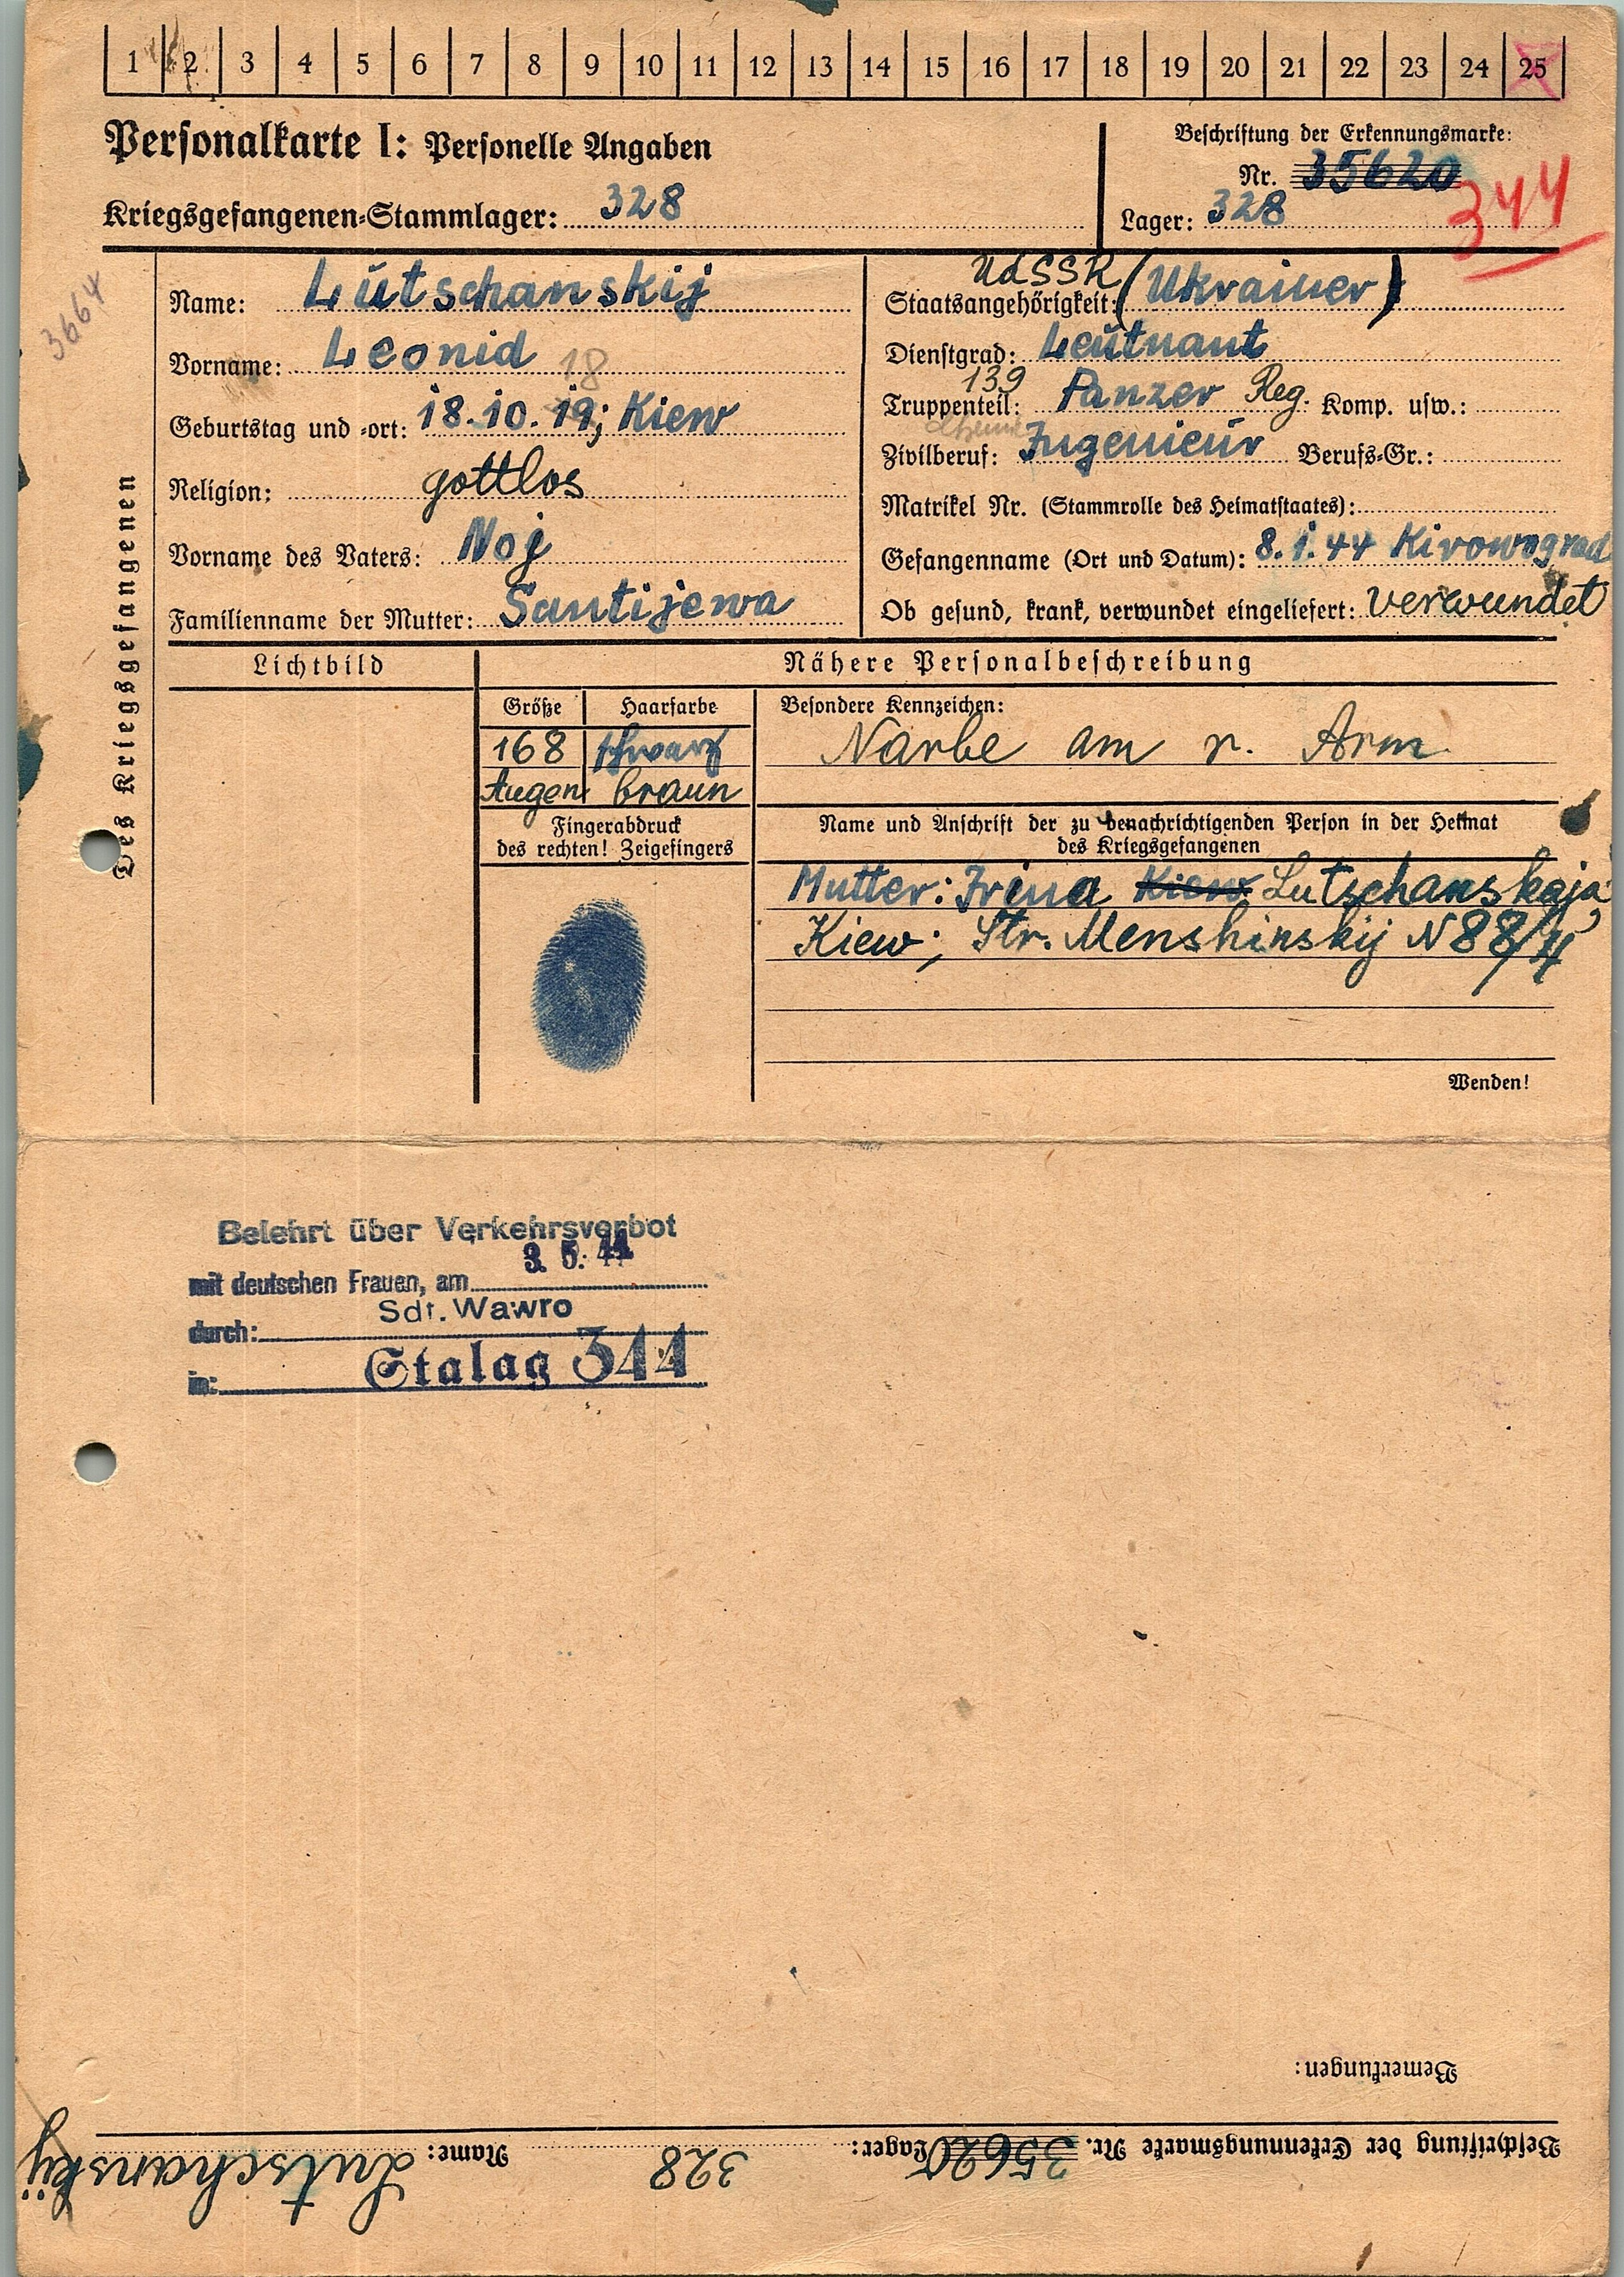 1 2 3 4 5 6 7 8 9 10 11 12 13 14 15 16 17 18 19 20 21 22 23 24 25
Personalkarte I: Personelle Angaben
Kriegsgefangenen-Stammlager: 328
Beschriftung der Erkennungsmarke:
Nr. 35620
Lager: 328
344
3664
Des Kriegsgefangenen
Name: Lutschanskij
Vorname: Leonid
18
Geburtstag und -ort: 18.10.19; Kiew
Religion: gottlos
Vorname des Vaters: Noj
Familienname der Mutter: Santijewa
UdSSR
Staatsangehörigkeit: (Ukrainer)
Dienstgrad: Leutnant
139
Truppenteil: Panzer Reg. Komp. usw.:
Zivilberuf: Ingenieur Berufs-Gr.:
Matrikel Nr. (Stammrolle des Heimatstaates):
Gefangenname (Ort und Datum): 8.1.44 Kirowograd
Ob gesund, krank, verwundet eingeliefert: verwundet
Lichtbild
Nähere Personalbeschreibung
Größe Haarfarbe
168 schwarz
Augen braun
Besondere Kennzeichen:
Narbe am r. Arm
Fingerabdruck
des rechten! Zeigefingers
Name und Anschrift der zu benachrichtigenden Person in der Heimat
des Kriegsgefangenen
Mutter: Irina Kiew Lutschanskaja
Kiew; Str. Menshinskij N 88/4
Wenden!
Belehrt über Verkehrsverbot
mit deutschen Frauen, am 3. 5. 44
durch: Sdf. Wawro
in: Stalag 344
Bemerkungen:
Beschriftung der Erkennungsmarke Nr. 35620 Lager: 328 Name: Lutschanskij